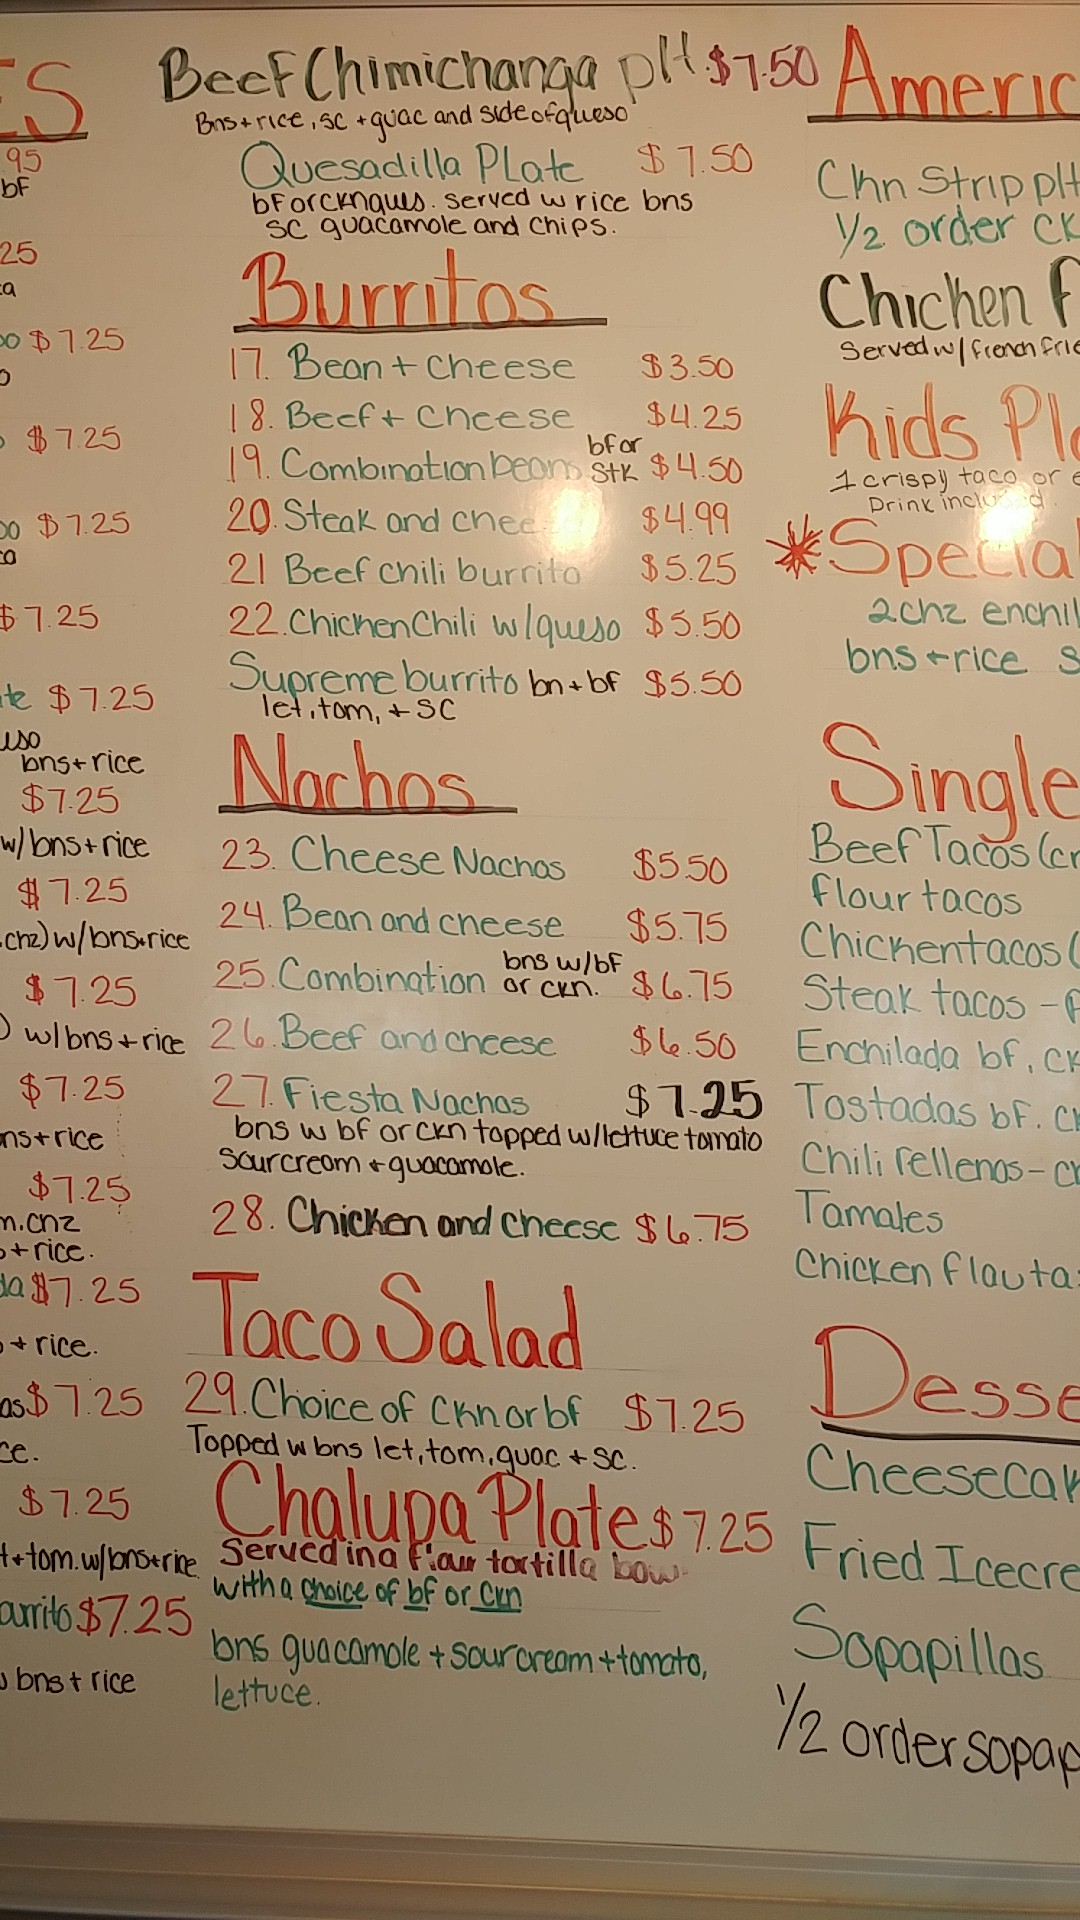 ES
95
bf
25
ca
oo $7.25
o
$7.25
oo $7.25
co
$7.25
te $7.25
eso
bns+rice
$7.25
w/bns+rice
$7.25
chz) w/bns+rice
$7.25
w/bns+rice
$7.25
ns+rice
$7.25
m.chz
o+rice.
da $7.25
o+rice.
as $7.25
ce.
$7.25
t+tom.w/bns+rice
burrito $7.25
bns+rice
Beef Chimichanga plt. $7.50
Bns+rice, sc +guac and side of queso
Quesadilla Plate $7.50
bf or ckn served w rice bns
sc guacamole and chips.
Burritos
17. Bean + cheese $3.50
18. Beef + cheese $4.25
19. Combination beans bf or stk $4.50
20. Steak and chee $4.99
21 Beef chili burrito $5.25
22. Chicken Chili w/queso $5.50
Supreme burrito bn+bf $5.50
let, tom, + SC
Nachos
23. Cheese Nachos $5.50
24. Bean and cheese $5.75
25. Combination bns w/bf or ckn. $6.75
26. Beef and cheese $6.50
27. Fiesta Nachos $7.25
bns w bf or ckn topped w/lettuce tomato
sour cream + guacamole.
28. Chicken and cheese $6.75
Taco Salad
29. Choice of Ckn or bf $7.25
Topped w bns let, tom, guac + sc.
Chalupa Plate $7.25
Served in a flour tortilla bowl
with a choice of bf or ckn
bns guacamole + sour cream + tomato,
lettuce.
Americ
Ckn Strip plt
1/2 order ck
Chicken f
Served w/ french frie
Kids Pl
1 crispy taco or e
Drink included.
*Special
2 chz enchil
bns + rice s
Single
Beef Tacos (cr
flour tacos
Chicken tacos (
Steak tacos -
Enchilada bf, ck
Tostadas bf. ck
Chili rellenos - c
Tamales
Chicken flauta
Desse
Cheesecak
Fried Icecre
Sopapillas
1/2 order sopap